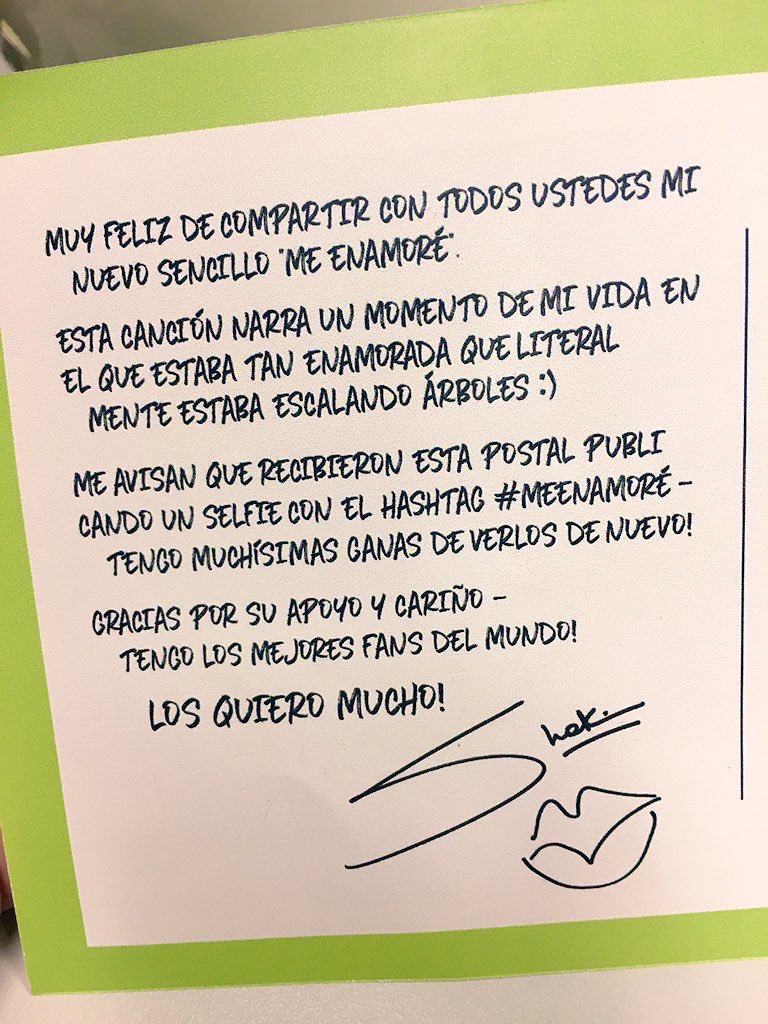 MUY FELIZ DE COMPARTIR CON TODOS USTEDES MI
NUEVO SENCILLO "ME ENAMORÉ".
ESTA CANCIÓN NARRA UN MOMENTO DE MI VIDA EN
EL QUE ESTABA TAN ENAMORADA QUE LITERAL
MENTE ESTABA ESCALANDO ÁRBOLES :)
ME AVISAN QUE RECIBIERON ESTA POSTAL PUBLI
CANDO UN SELFIE CON EL HASHTAG #MEENAMORÉ –
TENGO MUCHÍSIMAS GANAS DE VERLOS DE NUEVO!
GRACIAS POR SU APOYO Y CARIÑO –
TENGO LOS MEJORES FANS DEL MUNDO!
LOS QUIERO MUCHO!
Shak.